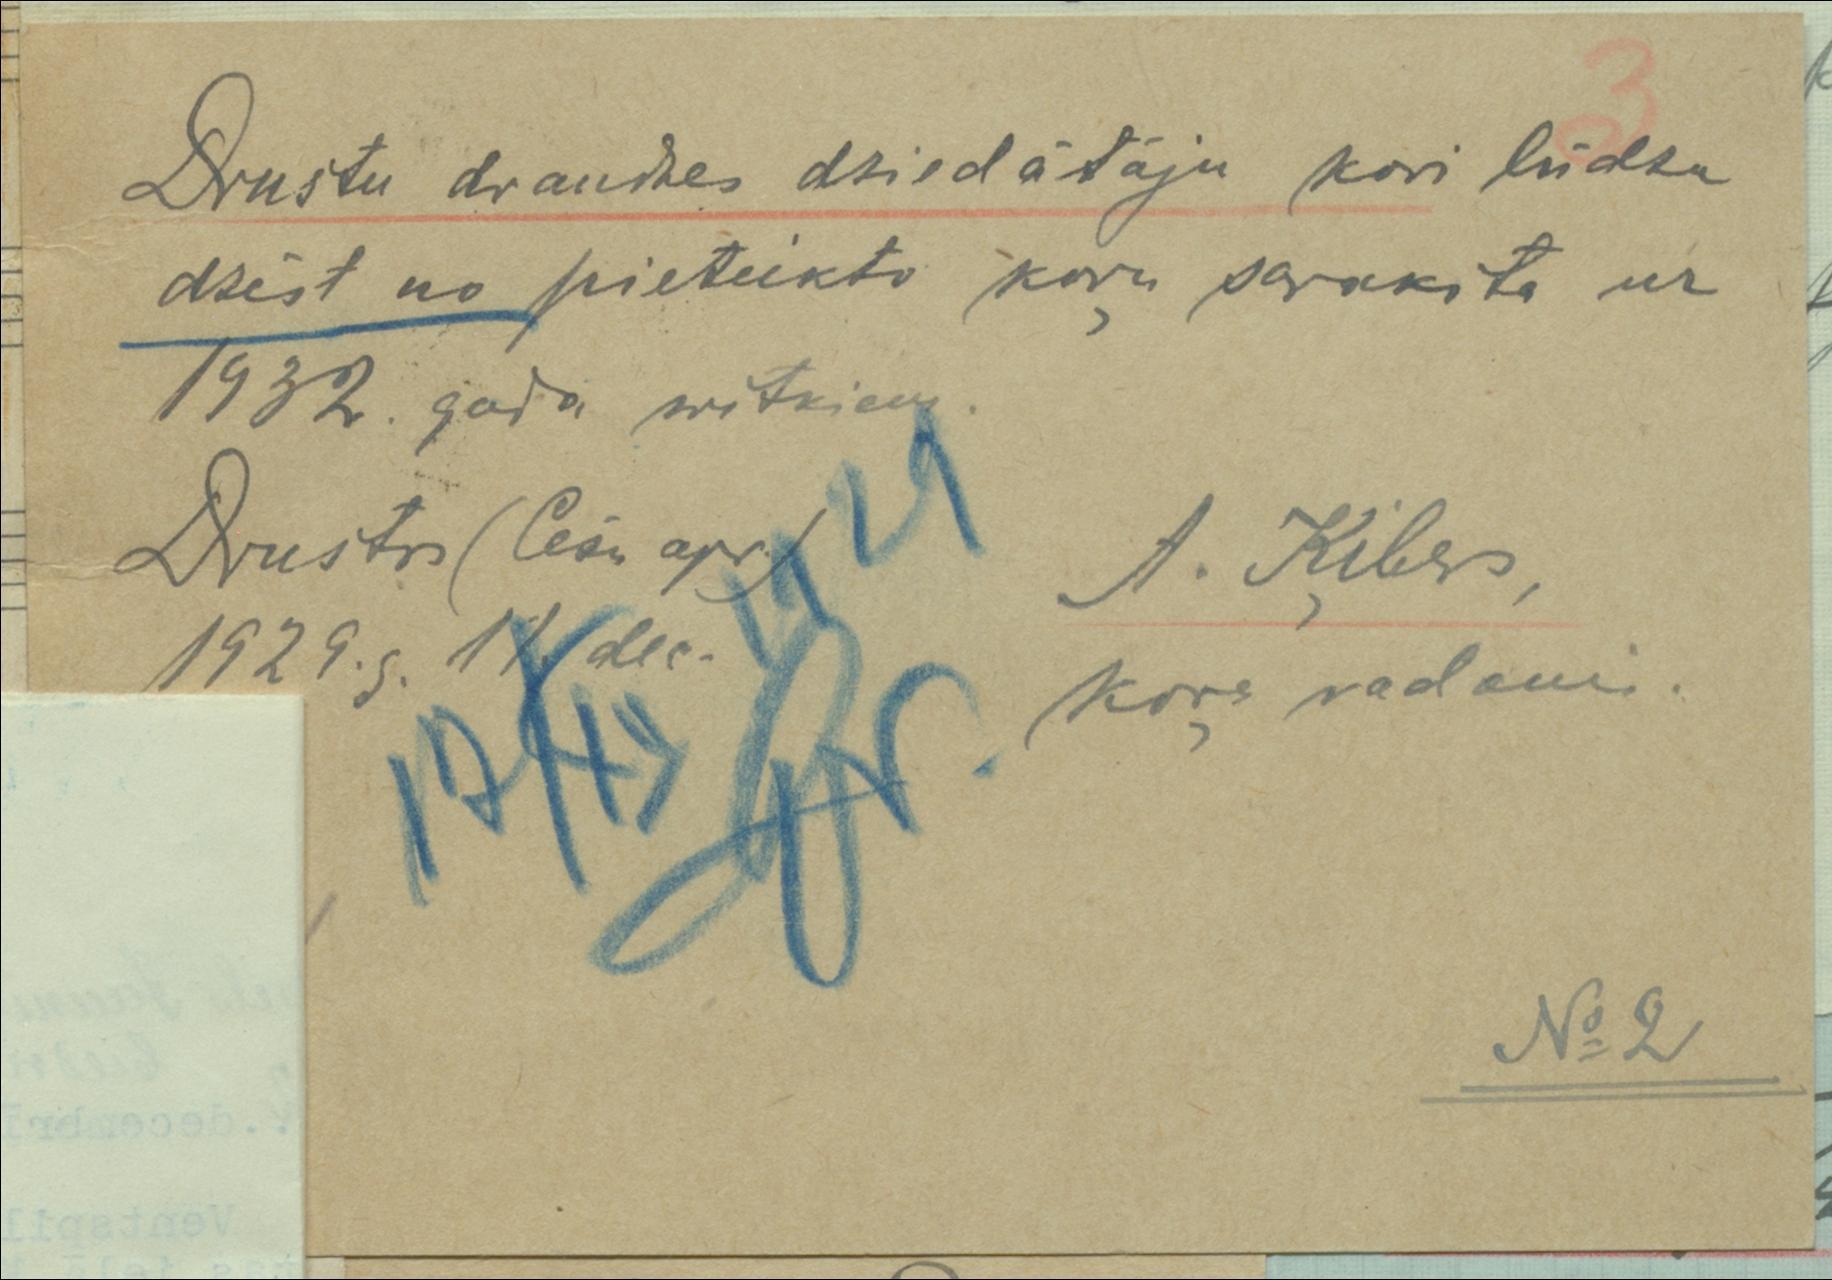 3
Drustu draudzes dziedātāju kori lūdzu
dzēst no pieteikto koŗu saraksta uz
1932. gada svētkiem.
Drustos (Cēsu apr.)
1929. g. 11. dec.
A. Ķibers,
koŗa vadonis.
№ 2
.decembrī
Ventspil